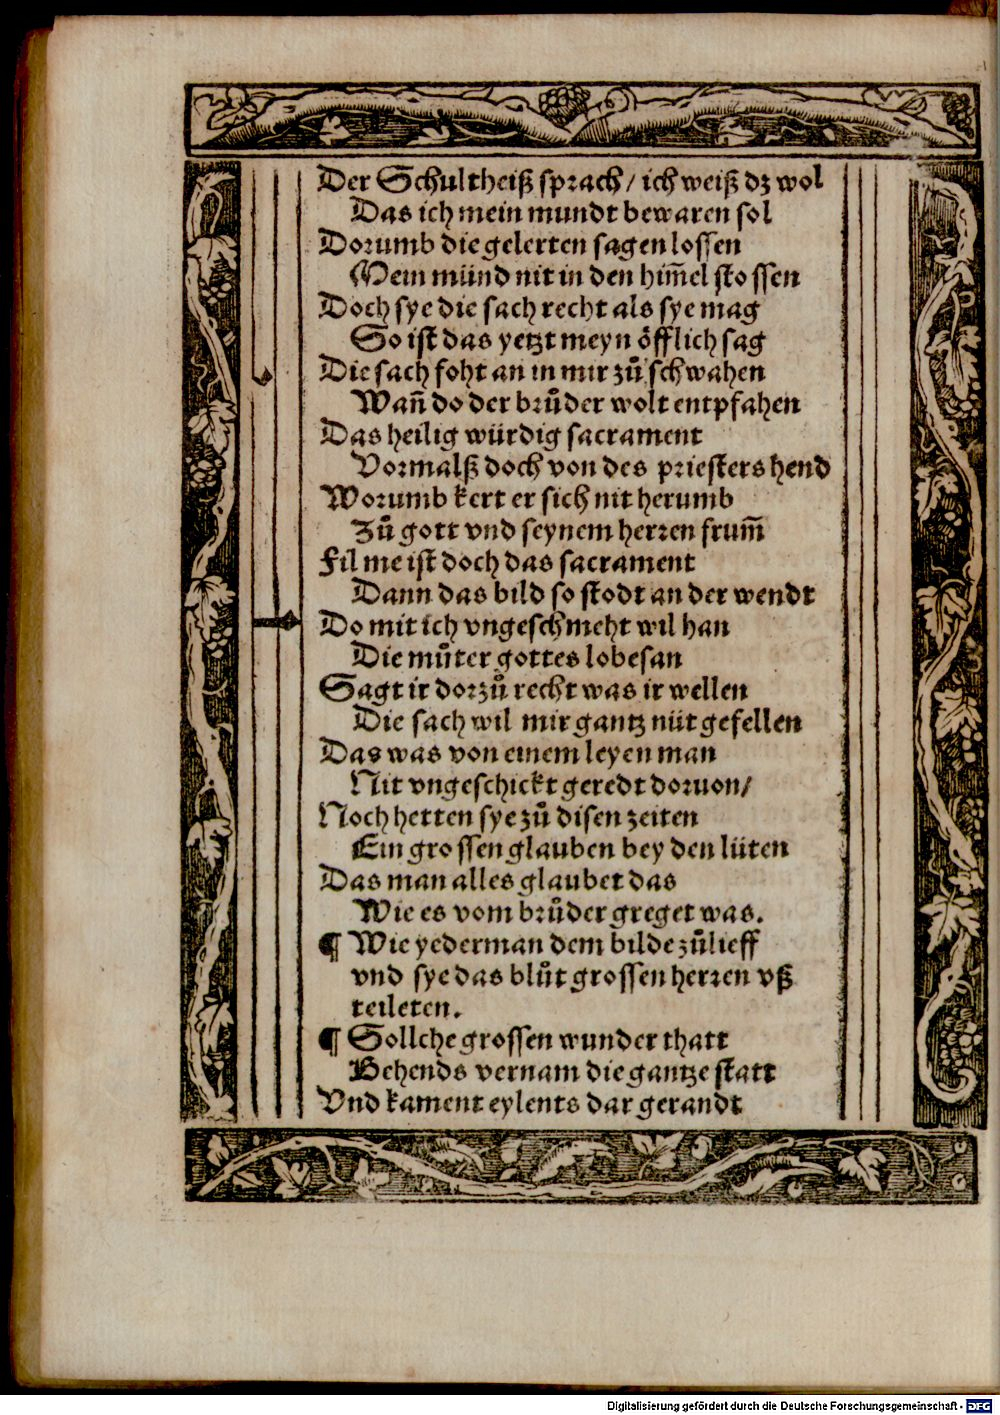 Der Schultheiß sprach / ich weiß dz wol
Das ich mein mundt bewaren sol
Dorumb die gelerten sagen lossen
Mein münd nit in den him̄el stossen
Doch sye die sach recht als sye mag
So ist das yetzt meyn öfflich sag
Die sach foht an in mir zů schwahen
Wan̄ do der brůder wolt entpfahen
Das heilig würdig sacrament
Vormalß doch von des priesters hend
Worumb kert er sich nit herumb
Zů gott vnd seynem herren frum̄
Fil me ist doch das sacrament
Dann das bild so stodt an der wendt
Do mit ich vngeschmeht wil han
Die můter gottes lobesan
Sagt ir dorzů recht was ir wellen
Die sach wil mir gantz nüt gefellen
Das was von einem leyen man
Nit vngeschickt geredt doruon /
Noch hetten sye zů disen zeiten
Ein grossen glauben bey den lüten
Das man alles glaubet das
Wie es vom brůder greget was.
¶ Wie yederman dem bilde zůlieff
vnd sye das blůt grossen herren vß
teileten.
¶ Sollche grossen wunder thatt
Behends vernam die gantze statt
Vnd kament eylents dar gerandt
Digitalisierung gefördert durch die Deutsche Forschungsgemeinschaft - DFG